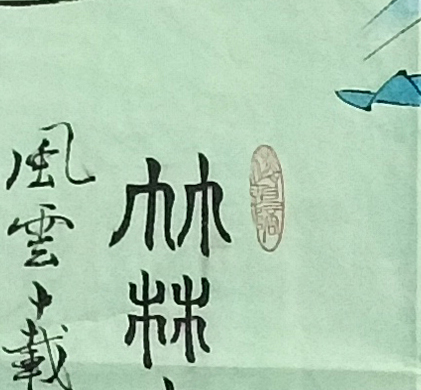 竹林
風雲十載